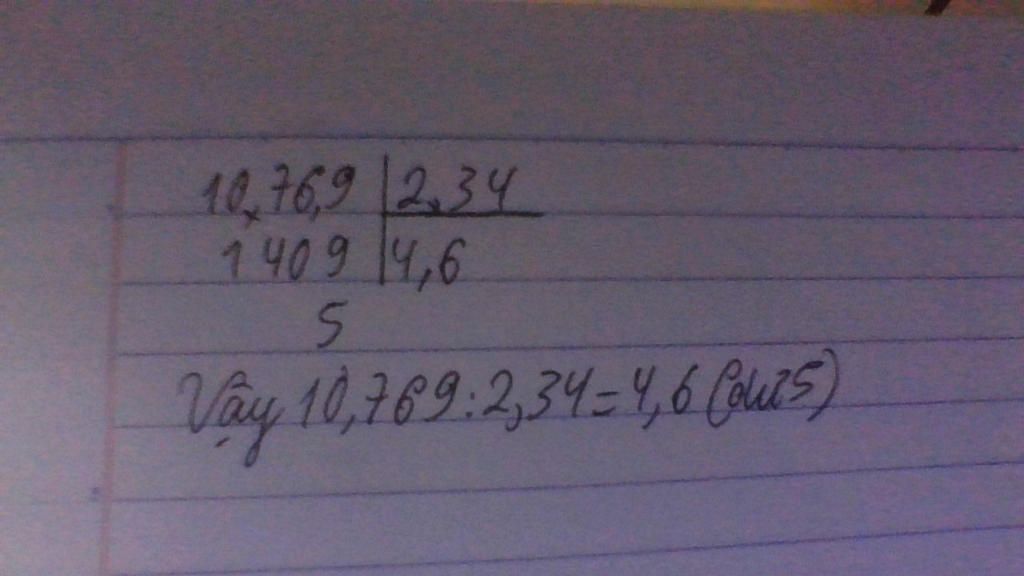 10,76,9 2,34
1409 4,6
5
Vậy 10,769:2,34=4,6 (dư 5)